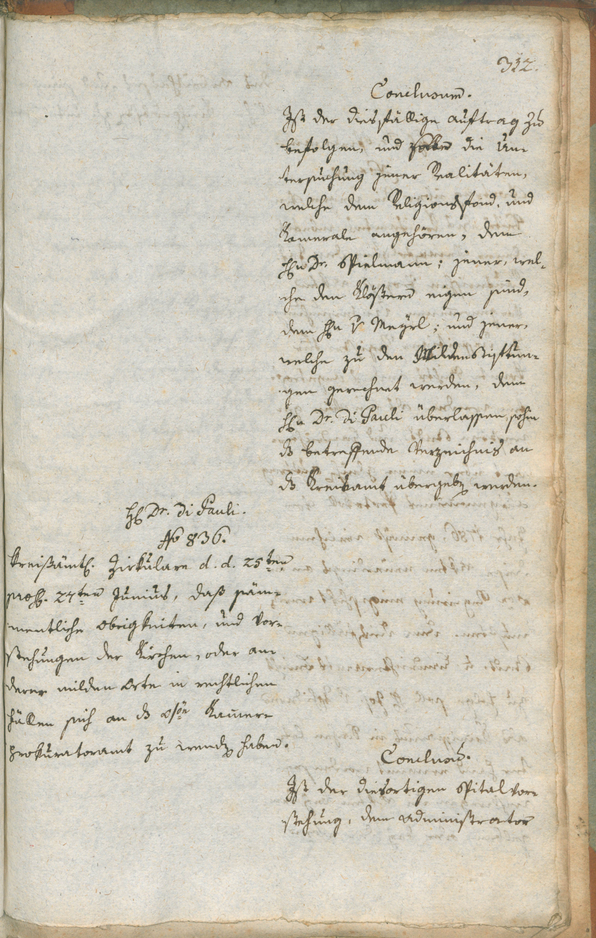 312.
Conclusum.
Ist der diesfällige Auftrag zu
befolgen, und sollen die Un-
tersuchung jener Realitäten,
welche dem Religionsfond, und
Kamerale angehören, dem
Hn Dr. Spielmann; jener, wel-
che den Klöstern eigen sind,
dem Hn v Mayrl; und jener,
welche zu den Mildenstiftun-
gen gerechnet werden, dem
Hn Dr. Di Pauli überlassen, sohin
das betreffende Verzeichnis an
das Kreisamt übergeben werden.
Hr Dr. Di Pauli.
No 836.
Kreisämtl. Zirkulare d. d. 25ten
praes. 27ten Junius, daß säm-
mentliche Obrigkeiten, und Vor-
stehungen der Kirchen, oder an-
derer milden Orte in rechtlichen
Fällen sich an das Kammer-
prokuratoramt zu wenden haben.
Conclus.
Ist der diesortigen Spitalvor-
stehung, dem Administrator